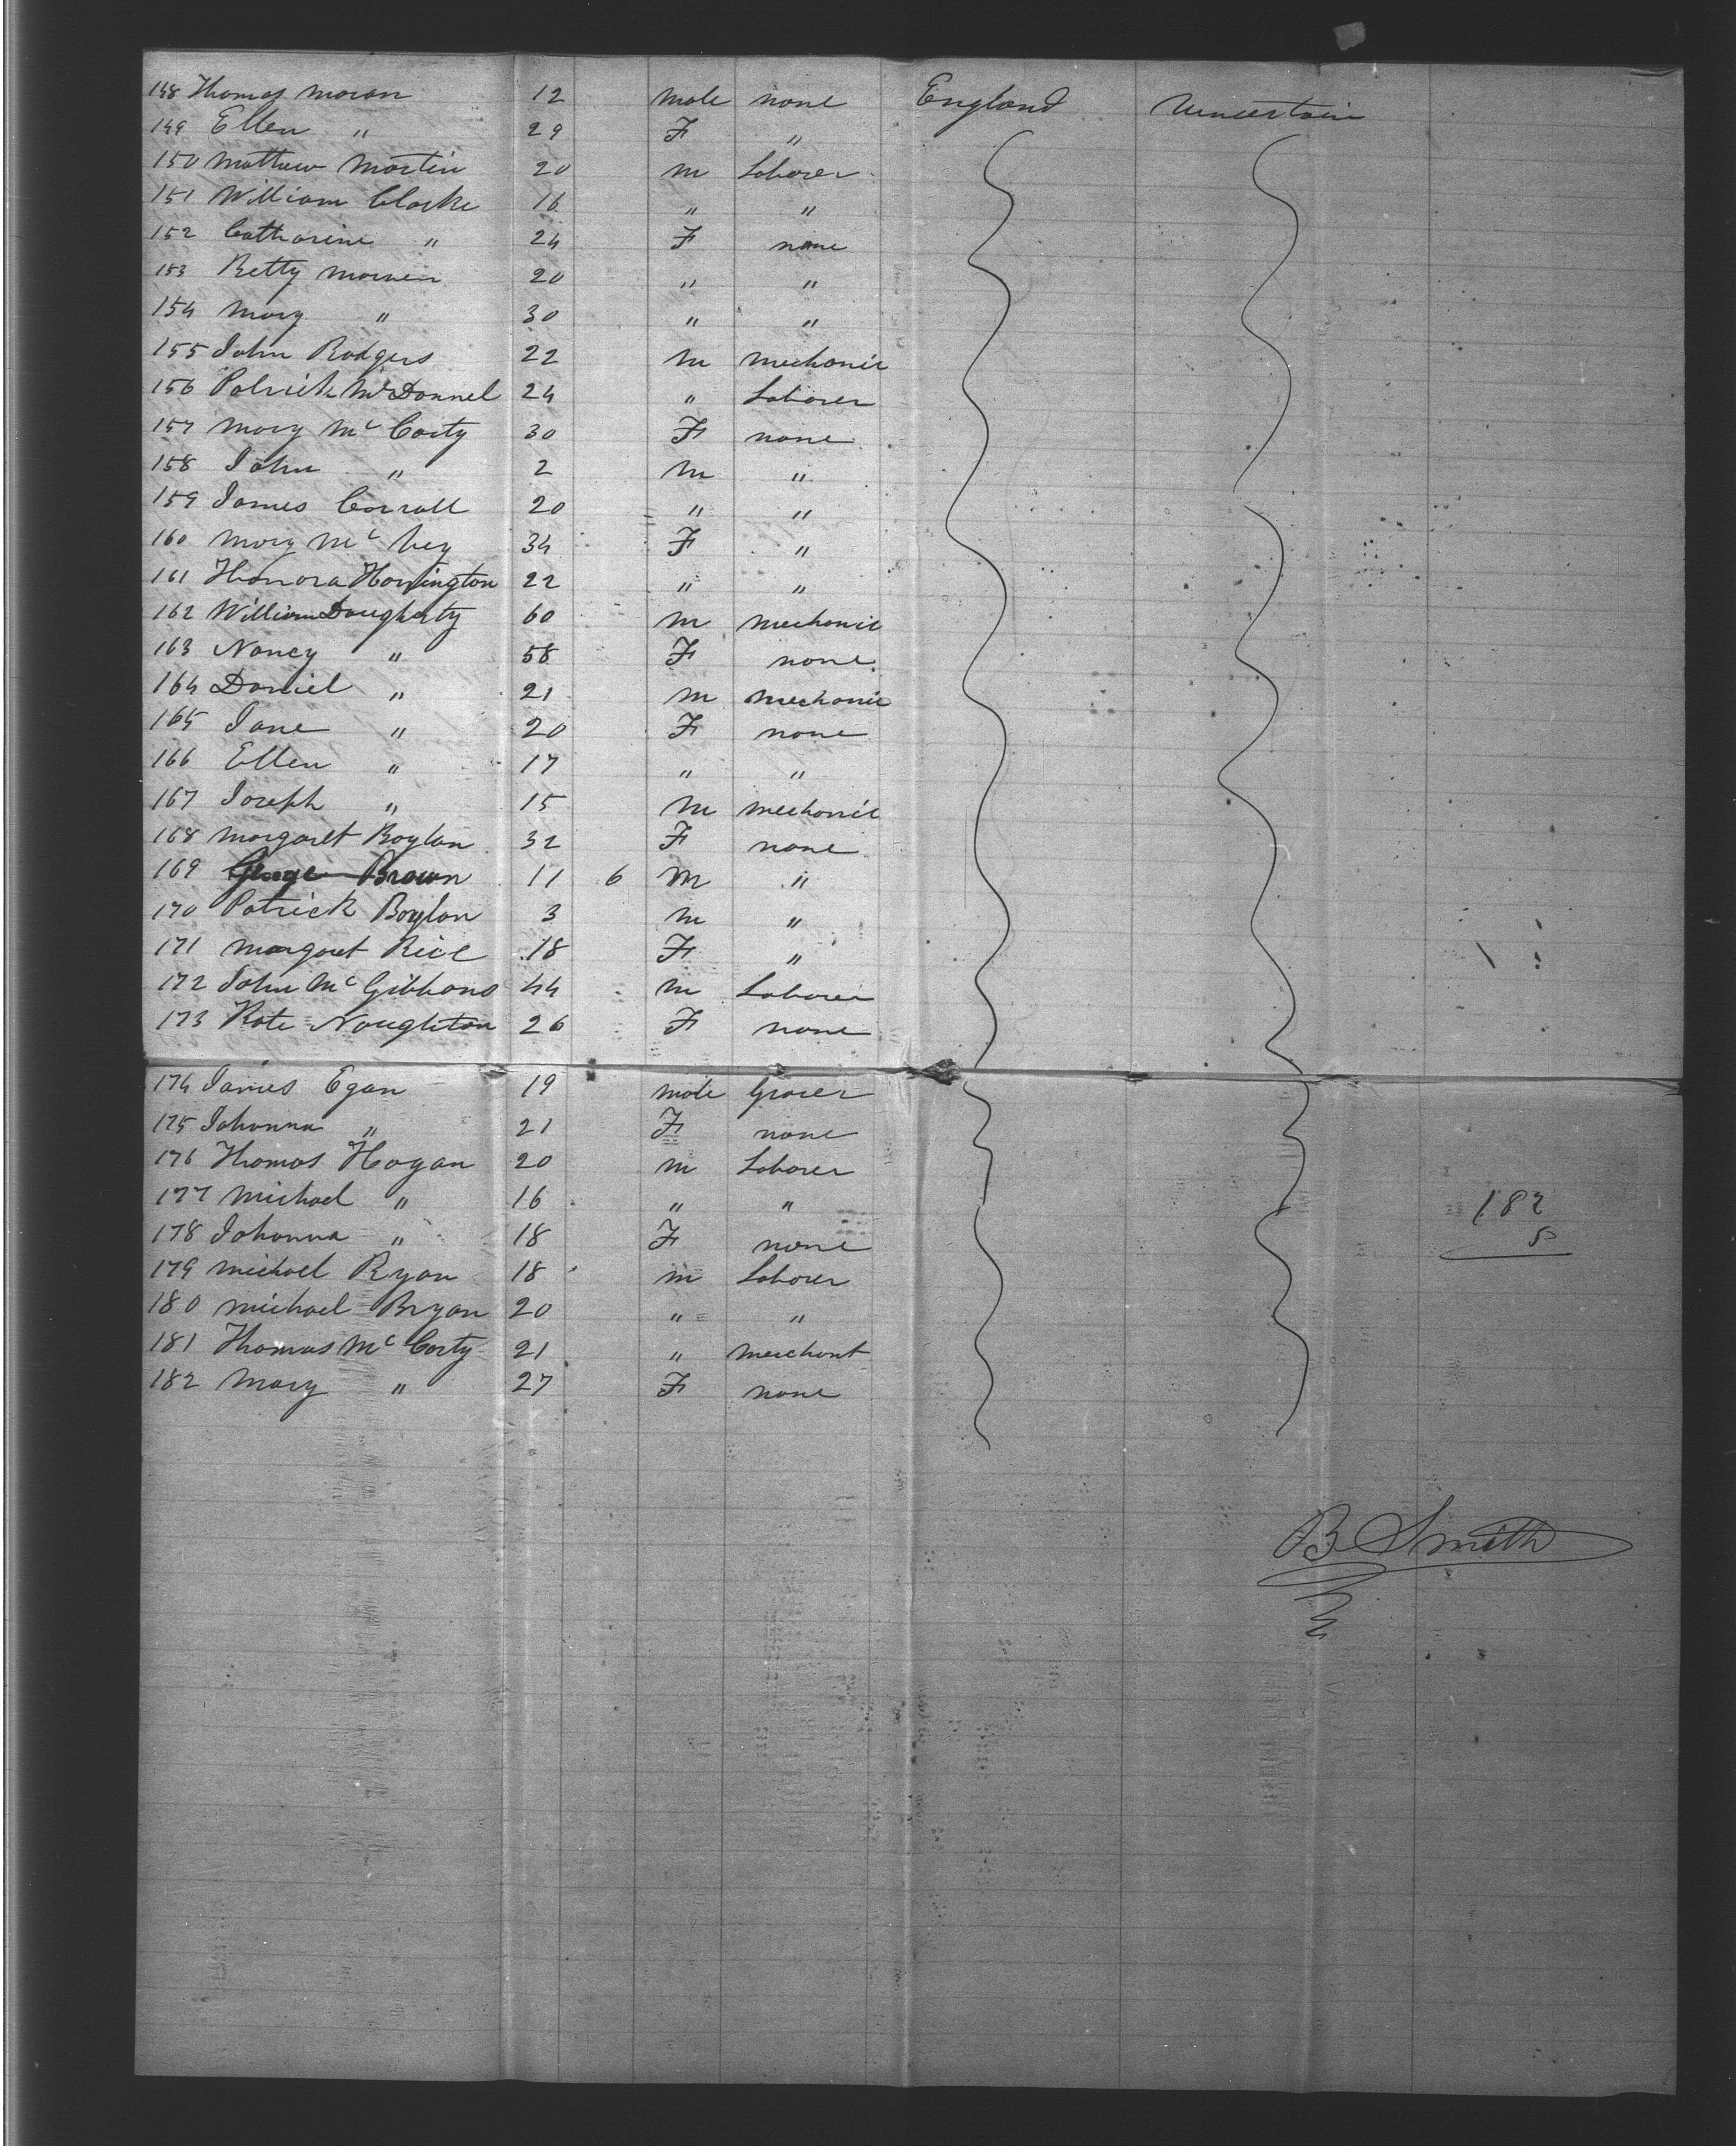 148 Thomas Moran 12 male none England Uncertain
149 Ellen " 29 F "
150 Mathew Martin 20 m Laborer
151 William Clarke 16 " "
152 Catharine " 24 F none
153 Betty 20 " "
154 Mary " 30 " "
155 John Rodgers 22 m mechanic
156 Patrick McDonnel 24 " Laborer
157 Mary McCarty 30 F none
158 John " 2 m "
159 James Carroll 20 " "
160 Mary 34 F "
161 Honora Harrington 22 " "
162 William Dougherty 60 m mechanic
163 Nancy " 58 F none
164 Daniel " 21 m mechanic
165 Jane " 20 F none
166 Ellen " 17 " "
167 Joseph " 15 m mechanic
168 Margaret Boylan 32 F none
169 George Brown 11 6 m "
170 Patrick Boylan 3 m "
171 Margaret Rice 18 F "
172 John McGibbons 44 m Laborer
173 Kate Naughton 26 F none
174 James Egan 19 male Grocer
175 Johanna " 21 F none
176 Thomas Hogan 20 m Laborer
177 Michael " 16 " "
178 Johanna " 18 F none
179 Michael Ryan 18 m Laborer
180 Michael Bryan 20 " "
181 Thomas McCarty 21 " merchant
182 Mary " 27 F none
182
5
B Smith